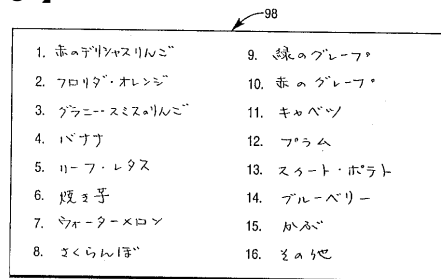 98
1. 赤のデリシャスりんご
2. フロリダ・オレンジ
3. グラニー・スミスのりんご
4. バナナ
5. リーフ・レタス
6. 焼き芋
7. ウォーターメロン
8. さくらんぼ
9. 緑のグレープ
10. 赤のグレープ
11. キャベツ
12. プラム
13. スィート・ポテト
14. ブルーベリー
15. かぶ
16. その他